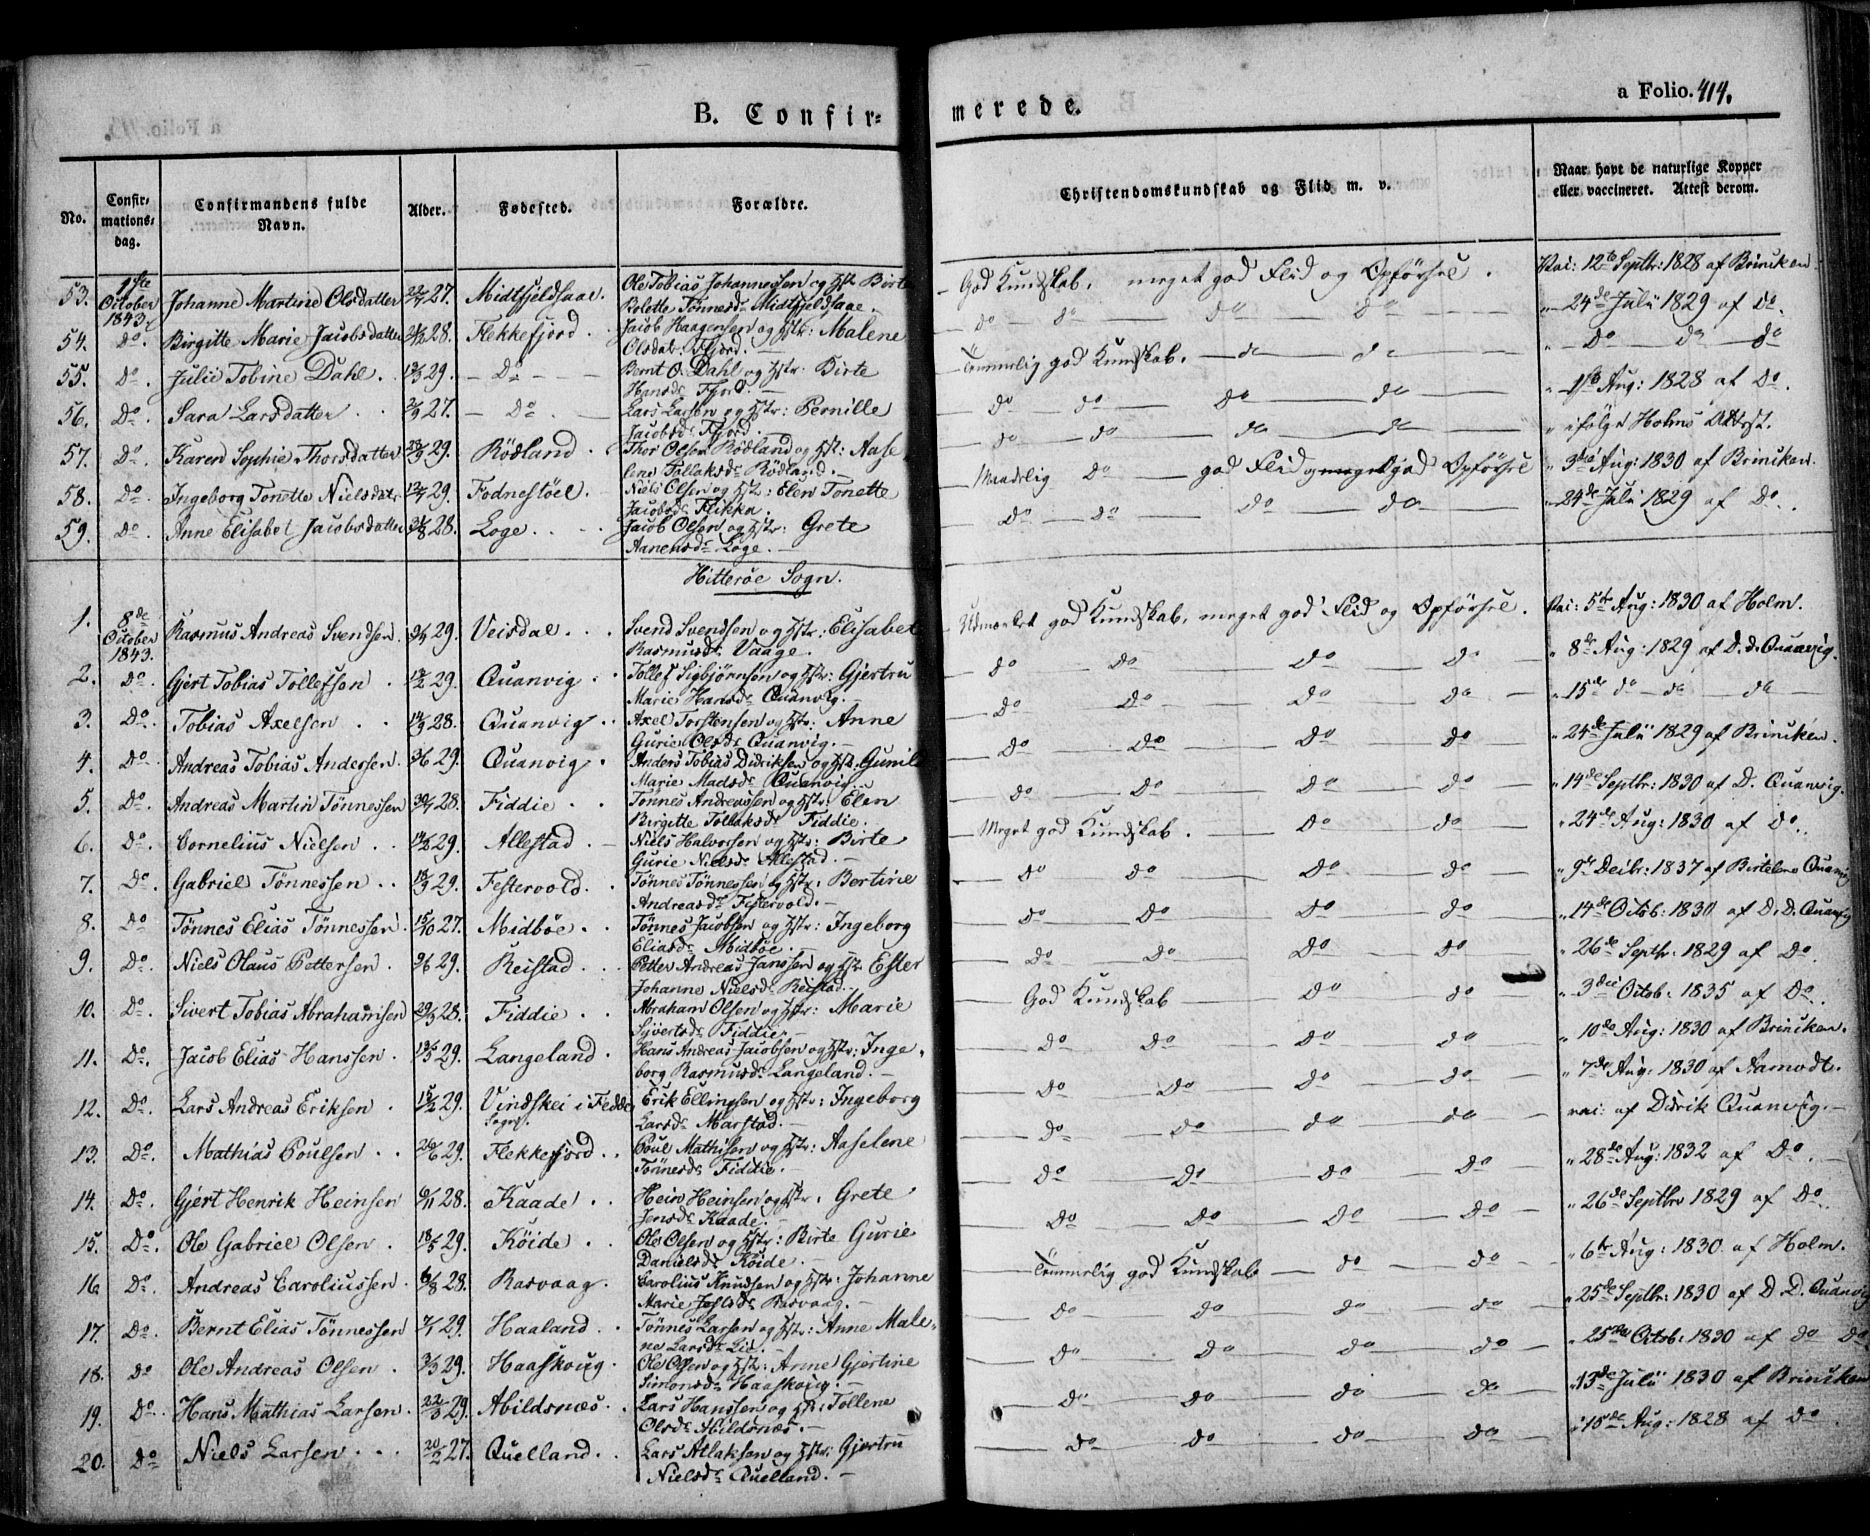 B. Confir=
merede.
a Folio. 414.
No.
Confir=
mations=
dag.
Confirmandens fulde
Navn.
Alder.
Fødested.
Forældre.
Christendomskundskab og Flid m. v.
Naar havt de naturlige Kopper
eller vaccineret. Attest derom.
53. 1ste October 1843. Johanne Martine Olsdatter 27. Midtfjeldsaae. Ole Tobias Johannessen og Hstr Birte
Bolette Tønnesd. Midtfjeldsaae.
God Kundskab, meget god Flid og Opførsel. Vai: 12te Septbr: 1828 af Briniken
54. Do. Birgitte Marie Jacobsdatter 28. Flekkefjord. Jacob Haagensen og Hstr: Malene
Olsdatr: Fjord.
do do do do „ 24de Julii 1829 af Do.
55. Do. Julie Tobine Dahl. 29. Do Bernt O. Dahl og Hstr: Birte
Hansd. Fjord.
Temmelig god Kundskab. do do „ Do do do
56. Do. Sara Larsdatter 27. Do. Lars Larsen og Hstr: Pernille
Jacobsd. Fjord.
do do do do „ 1ste Aug: 1828 af Do.
57. Do. Karen Sophie Thorsdatter 29. Rödland. Thor Olsen Rödland og Hstr: Aase
lene Tollaksd. Rödland.
do do do do „ ifølge Holms Attest.
58. Do. Ingeborg Tonette Nielsdatr 29. Fodnestöel. Niels Olsen og Hstr: Elen Tonette
Jacobsd. Flikka.
Maadelig do god Flid og meget god Opførsel „ 3die Aug: 1830 af Briniken.
59. Do. Anne Elisabet Jacobsdatter 28. Loge. Jacob Olsen og Hstr: Grete
Aanensd. Loge.
do do do do „ 24de Julii 1829 af Do.
Hitterøe Sogn.
1. 8de October 1843. Rasmus Andreas Svendsen 29. Veisdal. Svend Svendsen og Hstr: Elisabet
Rasmusd. Vaage.
Udmærket god Kundskab, meget god Flid og Opførsel. Vai: 5te Aug: 1830 af Holm.
2. Do. Gjert Tobias Tollefsen 29. Quanvig. Tollef Sigbjørnsen og Hstr: Gjertru
Marie Hansd. Quanvig.
do do do do „ 8de Aug: 1829 af D. d. Quanvig.
3. Do. Tobias Axelsen 28. Quanvig. Axel Torstensen og Hstr: Anne
Gurie Olsd. Quanvig.
do do do do „ 15de do do do
4. Do. Andreas Tobias Andersen. 29. Quanvig. Anders Tobias Didriksen og Hstr: Gunild
Marie Madsd. Quanvig.
do do do do „ 24de Julii 1829 af Briniken.
5. Do. Andreas Martin Tønnessen 28. Fiddie. Tønnes Andreassen og Hstr: Elen
Birgitte Tollaksd. Fiddie.
do do do do „ 14de Septbr: 1830 af D. Quanvig.
6. Do. Cornelius Nielsen 29. Allestad. Niels Halvorsen og Hstr: Birte
Gurie Nielsd. Allestad.
Meget god Kundskab. do do „ 24de Aug: 1830 af Do.
7. Do. Gabriel Tønnessen 29. Festervold. Tønnes Tønnessen og Hstr: Bertine
Andreasd. Festervold.
do do do do „ 9de Deibr: 1837 af Birtelene Quanvig
8. Do Tønnes Elias Tønnessen. 15/10 27. Midbøe. Tønnes Jacobsen og Hstr: Ingeborg
Eliasd. Midbøe.
do do do do „ 14de Octob: 1830 af D. D. Quanvig
9. Do. Niels Olaus Pettersen. 29. Reistad. Petter Andreas Janssen og Hstr Ester
Johanne Nielsd. Reistad.
do do do do „ 26de Septbr: 1829 af Do.
10. Do. Sivert Tobias Abrahamsen 28. Fiddie. Abraham Olsen og Hstr: Marie
Syvertsd. Fiddie.
God Kundskab do do „ 3die Octob: 1835 af Do.
11. Do. Jacob Elias Hanssen. 29. Langeland. Hans Andreas Jacobsen og Hstr: Inge=
borg Rasmusd. Langeland.
do do do do „ 10de Aug: 1830 af Briniken.
12. Do. Lars Andreas Eriksen. 29. Vindskei i Fedde
Sogn. Erik Ellingsen og Hstr: Ingeborg
Larsd. Marstad.
do do do do „ 7de Aug: 1830 af Aamodt.
13. Do. Mathias Poulsen 29. Flekkefjord. Poul Mathisen og Hstr: Aaselene
Tønnesd. Fiddie.
do do do do vai: af Didrik Quanvig.
14. Do. Gjert Henrik Heinsen 28. Kaade. Hein Heinsen og Hstr: Grete
Jensd. Kaade.
do do do do „ 28de Aug: 1832 af Do.
15. Do. Ole Gabriel Olsen. 18/5 29. Köide. Ole Olsen og Hstr: Birte Gurie
Danielsd. Köide.
do do do do „ 26de Septbr 1829 af Do.
16 Do. Andreas Caroliussen. 28. Rasvaag. Carolius Knudsen og Hstr: Johanne
Marie Rasvaag.
Temmelig god Kundskab do do „ 6te Aug: 1830. af Holm.
17. Do. Bernt Elias Tønnessen 29. Haaland. Tønnes Larsen og Hstr: Anne Male=
ne Larsd. Lie.
do do do do „ 25de Septbr: 1830 af D. D. Quanvig
18. Do Ole Andreas Olsen. 29. Haaskoug. Ole Olsen og Hstr: Anne Gjertine
Simonsd. Haaskoug.
do do do do „ 25de Octob: 1830 af do Do
19. Do. Hans Mathias Larsen. 29. Abildsnæs. Lars Hanssen og Hstr: Tollene
Olsd. Abildsnæs.
do do do do „ 13de Julii 1830 af Briniken
20. Do Niels Larsen. 20/2 27. Quelland. Lars Atlaksen og Hstr: Gjertru
Nielsd. Quelland.
do do do do „ 15de Aug: 1828 af Do.